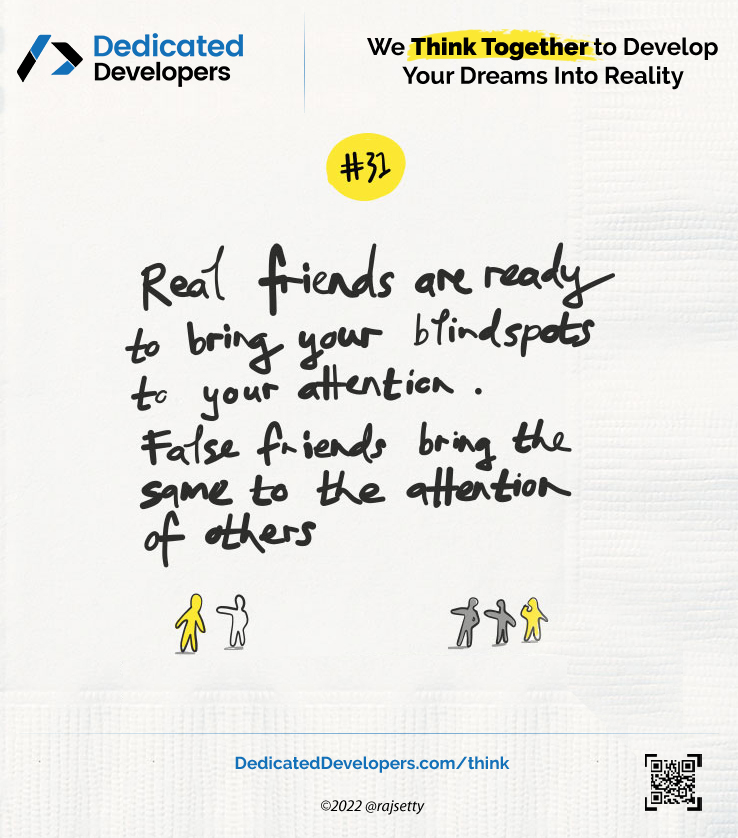 Dedicated
Developers
We Think Together to Develop
Your Dreams Into Reality
#31
Real friends are ready
to bring your blindspots
to your attention.
False friends bring the
same to the attention
of others
DedicatedDevelopers.com/think
©2022 @rajsetty